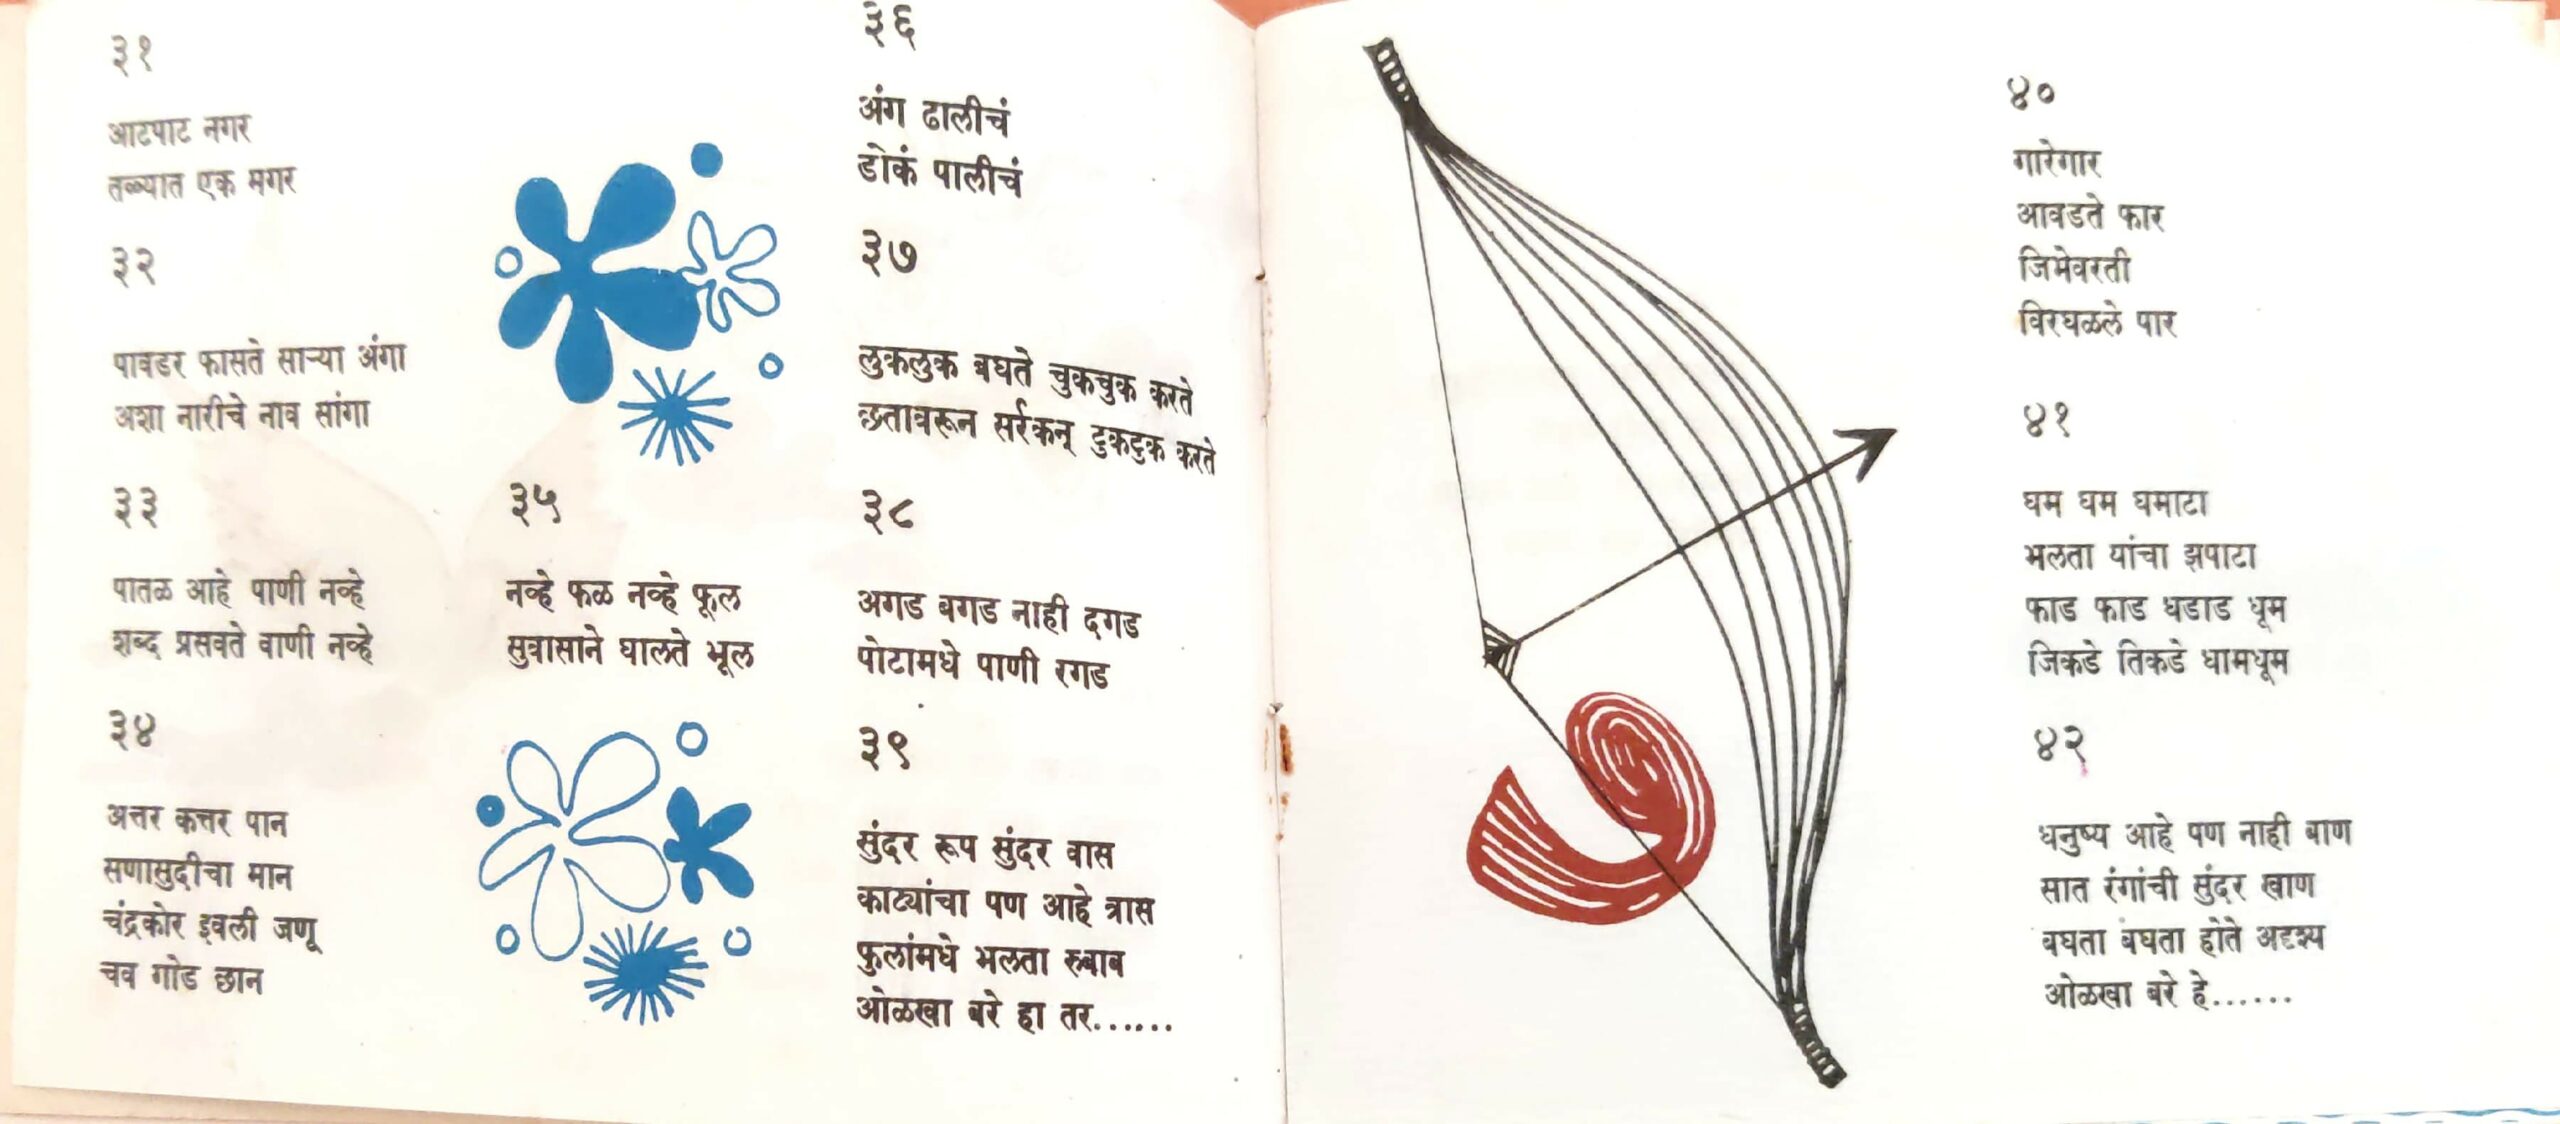 ३१
आटपाट नगर
तळ्यात एक मगर
३२
पावडर फासते साऱ्या अंगा
अशा नारीचे नाव सांगा
३३
पातळ आहे पाणी नव्हे
शब्द प्रसवते वाणी नव्हे
३४
अत्तर कत्तर पान
सणासुदीचा मान
चंद्रकोर इवली जणू
चव गोड छान
३५
नव्हे फळ नव्हे फूल
सुवासाने घालते भूल
३६
अंग ढालीचं
डोकं पालीचं
३७
लुकलुक बघते चुकचुक करते
छतावरून सर्रकन् टुकटुक करते
३८
अगड बगड नाही दगड
पोटामधे पाणी रगड
३९
सुंदर रूप सुंदर वास
काट्यांचा पण आहे त्रास
फुलांमधे भलता रुबाब
ओळखा बरे हा तर......
४०
गारेगार
आवडते फार
जिभेवरती
विरघळले पार
४१
घम घम घमाटा
भलता यांचा झपाटा
फाड फाड धडाड धूम
जिकडे तिकडे धामधूम
४२
धनुष्य आहे पण नाही बाण
सात रंगांची सुंदर खाण
बघता बघता होते अदृश्य
ओळखा बरे हे......